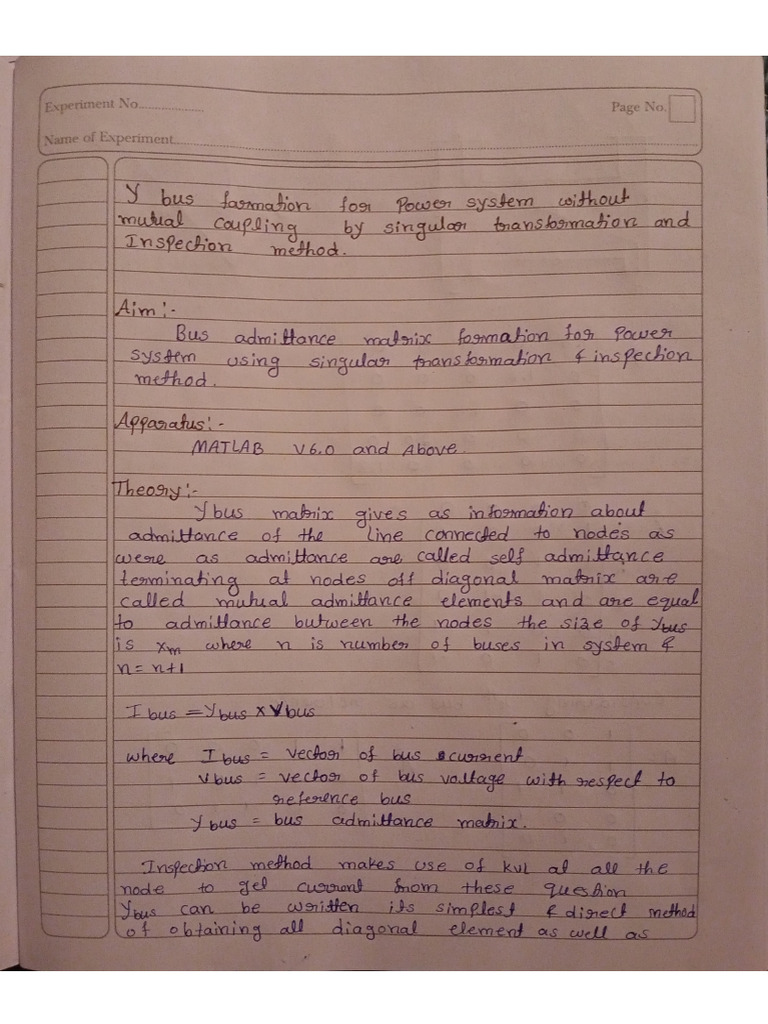 Experiment No..................
Page No.
Name of Experiment..................
Y bus farmation for Power system without
mutual coupling by singular transformation and
Inspection method.
Aim :-
Bus admittance matrix formation for Power
system using singular transformation & inspection
method.
Apparatus :-
MATLAB V6.0 and Above.
Theory :-
Ybus matrix gives as information about
admittance of the line connected to nodes as
were as admittance are called self admittance
terminating at nodes off diagonal matrix are
called mutual admittance elements and are equal
to admittance between the nodes the size of Ybus
is xm where n is number of buses in system &
n = n+1
I bus = Ybus x Vbus
where I bus = vector of bus current
Vbus = vector of bus voltage with respect to
reference bus
Ybus = bus admittance matrix.
Inspection method makes use of kvl at all the
node to gel current from these question
Ybus can be written its simplest & direct method
of obtaining all diagonal element as well as